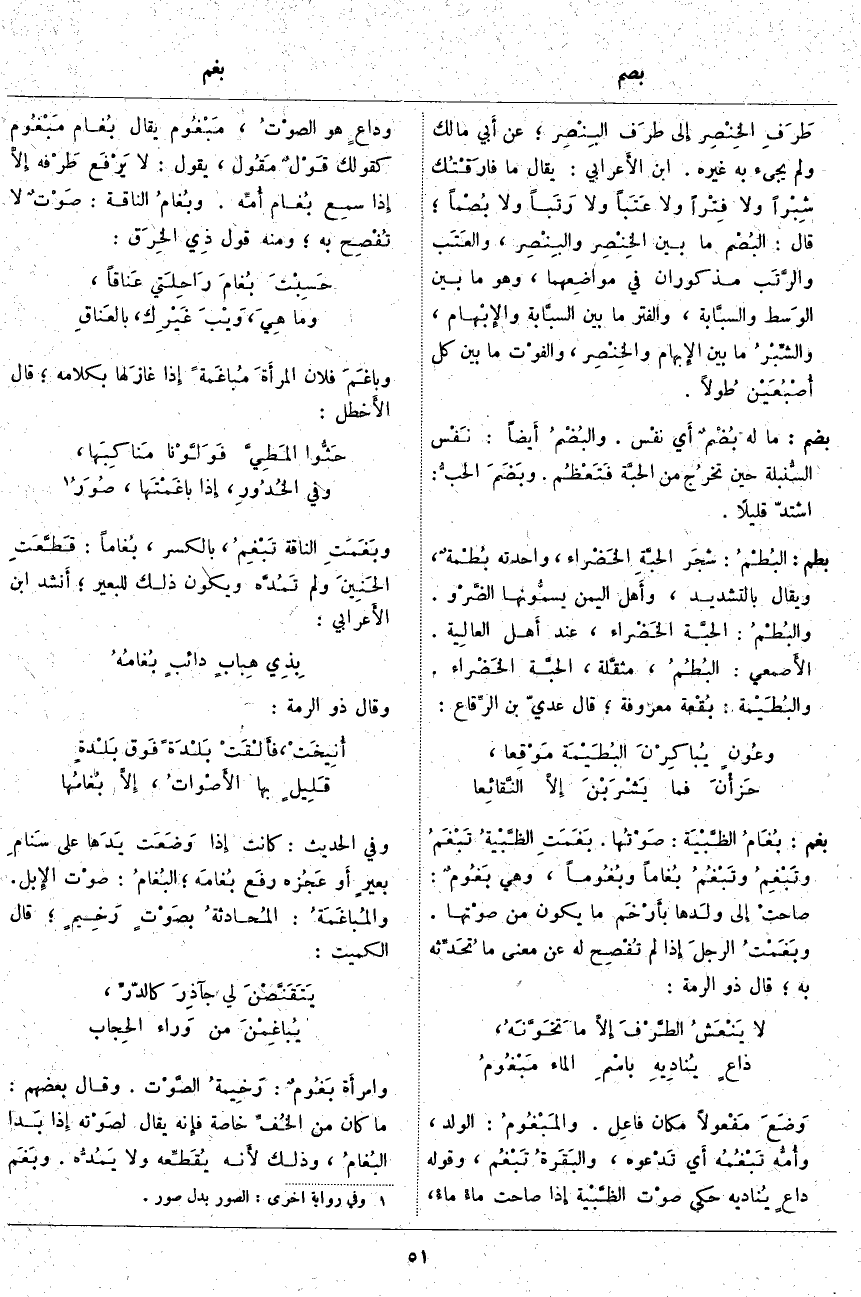 بصم
بغم
طَرَفِ الخِنْصِر إلى طرَف البِنْصِر ؛ عن أبي مالك
ولم يجىء به غيره . ابن الأعرابي : يقال ما فارَقْتُك
شِبْراً ولا فِتْراً ولا عَتَباً ولا رَتَباً ولا بُصْماً ؛
قال : البُصْم ما بين الخِنْصِر والبِنْصِر ، والعَتَب
والرَّتَب مذكوران في مواضعهما ، وهو ما بين
الوسَط والسبَّابة ، والفتر ما بين السبَّابة والإبْهام ،
والشِّبْرُ ما بين الإبهام والخِنْصِر ، والفوْت ما بين كل
أصْبُعَيْن طُولاً .
بضم : ما له بُضْمٌ أي نفْس . والبُضْمُ أيضاً : نَفْس
السُّنبلة حين تخرُج من الحبَّة فتَعْظُم . وبَضَمَ الحبُّ :
اشتدّ قليلًا .
بطم : البُطْمُ : شجَر الحبَّةِ الخَضْراء ، واحدته بُطْمةٌ ،
ويقال بالتشديد ، وأهل اليمن يسمُّونها الضَّرْو .
والبُطْمُ : الحبَّة الخَضْراء ، عند أهل العالية .
الأصمعي : البُطُمُ ، مثقَّلة ، الحبَّة الخَضْراء .
والبُطَيْمة : بُقْعة معروفة ؛ قال عديّ بن الرِّقاع :
وعُونٍ يُباكِرْنَ البُطَيْمة مَوْقِعا ،
حَزأنَ فما يَشْرَبْنَ إلاَّ النَّقائعا
بغم : بُغَامُ الظَّبْيَة : صَوْتُها . بَغَمَتِ الظَّبْيةُ تَبْغَمُ
وتَبْغِمُ وتَبْغُمُ بُغاماً وبُغُوماً ، وهي بَغُومٌ :
صاحتْ إلى ولَدها بأرْخَم ما يكون من صوتها .
وبَغَمْتُ الرجلَ إذا لم تُفْصِح له عن معنى ما تُحَدِّثه
به ؛ قال ذو الرمة :
لا يَنْعَشُ الطَّرْفَ إلاَّ ما تَخَوَّنَهُ ،
داعٍ يُنادِيهِ باسْمِ الماء مَبْغُومُ
وَضَعَ مَفْعولاً مكان فاعل . والمَبْغُومُ : الولد ،
وأُمُّه تَبْغُمُه أي تَدْعوه ، والبَقَرةُ تَبْغُم ، وقوله
داعٍ يُناديه حكى صوْت الظَّبْية إذا صاحت ماءْ ماءْ ،
وداعٍ هو الصوْتُ ، مَبْغُوم يقال بُغام مَبْغُوم
كقولك قَوْلٌ مَقُول ، يقول : لا يَرْفَع طَرْفه إلاَّ
إذا سمِع بُغام أُمّه . وبُغامُ الناقة : صَوْتٌ لا
تُفْصِح به ؛ ومنه قول ذي الخِرَق :
حَسِبْتَ بُغامَ رَاحِلَتي عَناقاً ،
وما هِيَ ، وَيْبَ غَيْرِك ، بالعَناقِ
وباغَمَ فلان المرأةَ مُباغَمةً إذا غازَلها بكلامه ؛ قال
الأخطل :
حَثُّوا المَطِيَّ فَوَلَّوْنا مَناكِبَها ،
وفي الخُدُورِ ، إذا باغَمْتَها ، صُوَرُ١
وبَغَمَتِ الناقة تَبْغِمُ ، بالكسر ، بُغاماً : قَطَّعَتِ
الحَنِينَ ولم تَمُدَّه ويكون ذلك للبعير ؛ أنشد ابن
الأعرابي :
بِذِي هِبابٍ دائبٍ بُغامُهُ
وقال ذو الرمة :
أُنِيخَتْ ، فأَلْقَتْ بَلْدَةً فَوق بَلْدةٍ
قَلِيلٍ بها الأصْواتُ ، إلاَّ بُغامُها
وفي الحديث : كانت إذا وَضَعَت يَدَها على سَنامِ
بعيرٍ أو عَجُزه رفَع بُغامَه ؛ البُغامُ : صوْت الإبل .
والمُباغَمَةُ : المُحادثةُ بصَوْتٍ رَخِيمٍ ؛ قال
الكميت :
يَتَقَنَّصْنَ لي جآذِرَ كالدّرْ ،
يُباغِمْنَ من وَراء الحِجاب
وامرأة بَغُومٌ : رَخيمةُ الصَّوْت . وقال بعضهم :
ما كان من الخُفِّ خاصة فإنه يقال لصَوْته إذا بَدا
البُغامُ ، وذلك لأنه يُقَطِّعه ولا يَمُدُّه . وبَغَم
١ وفي رواية اخرى : الصور بدل صور .
٥١